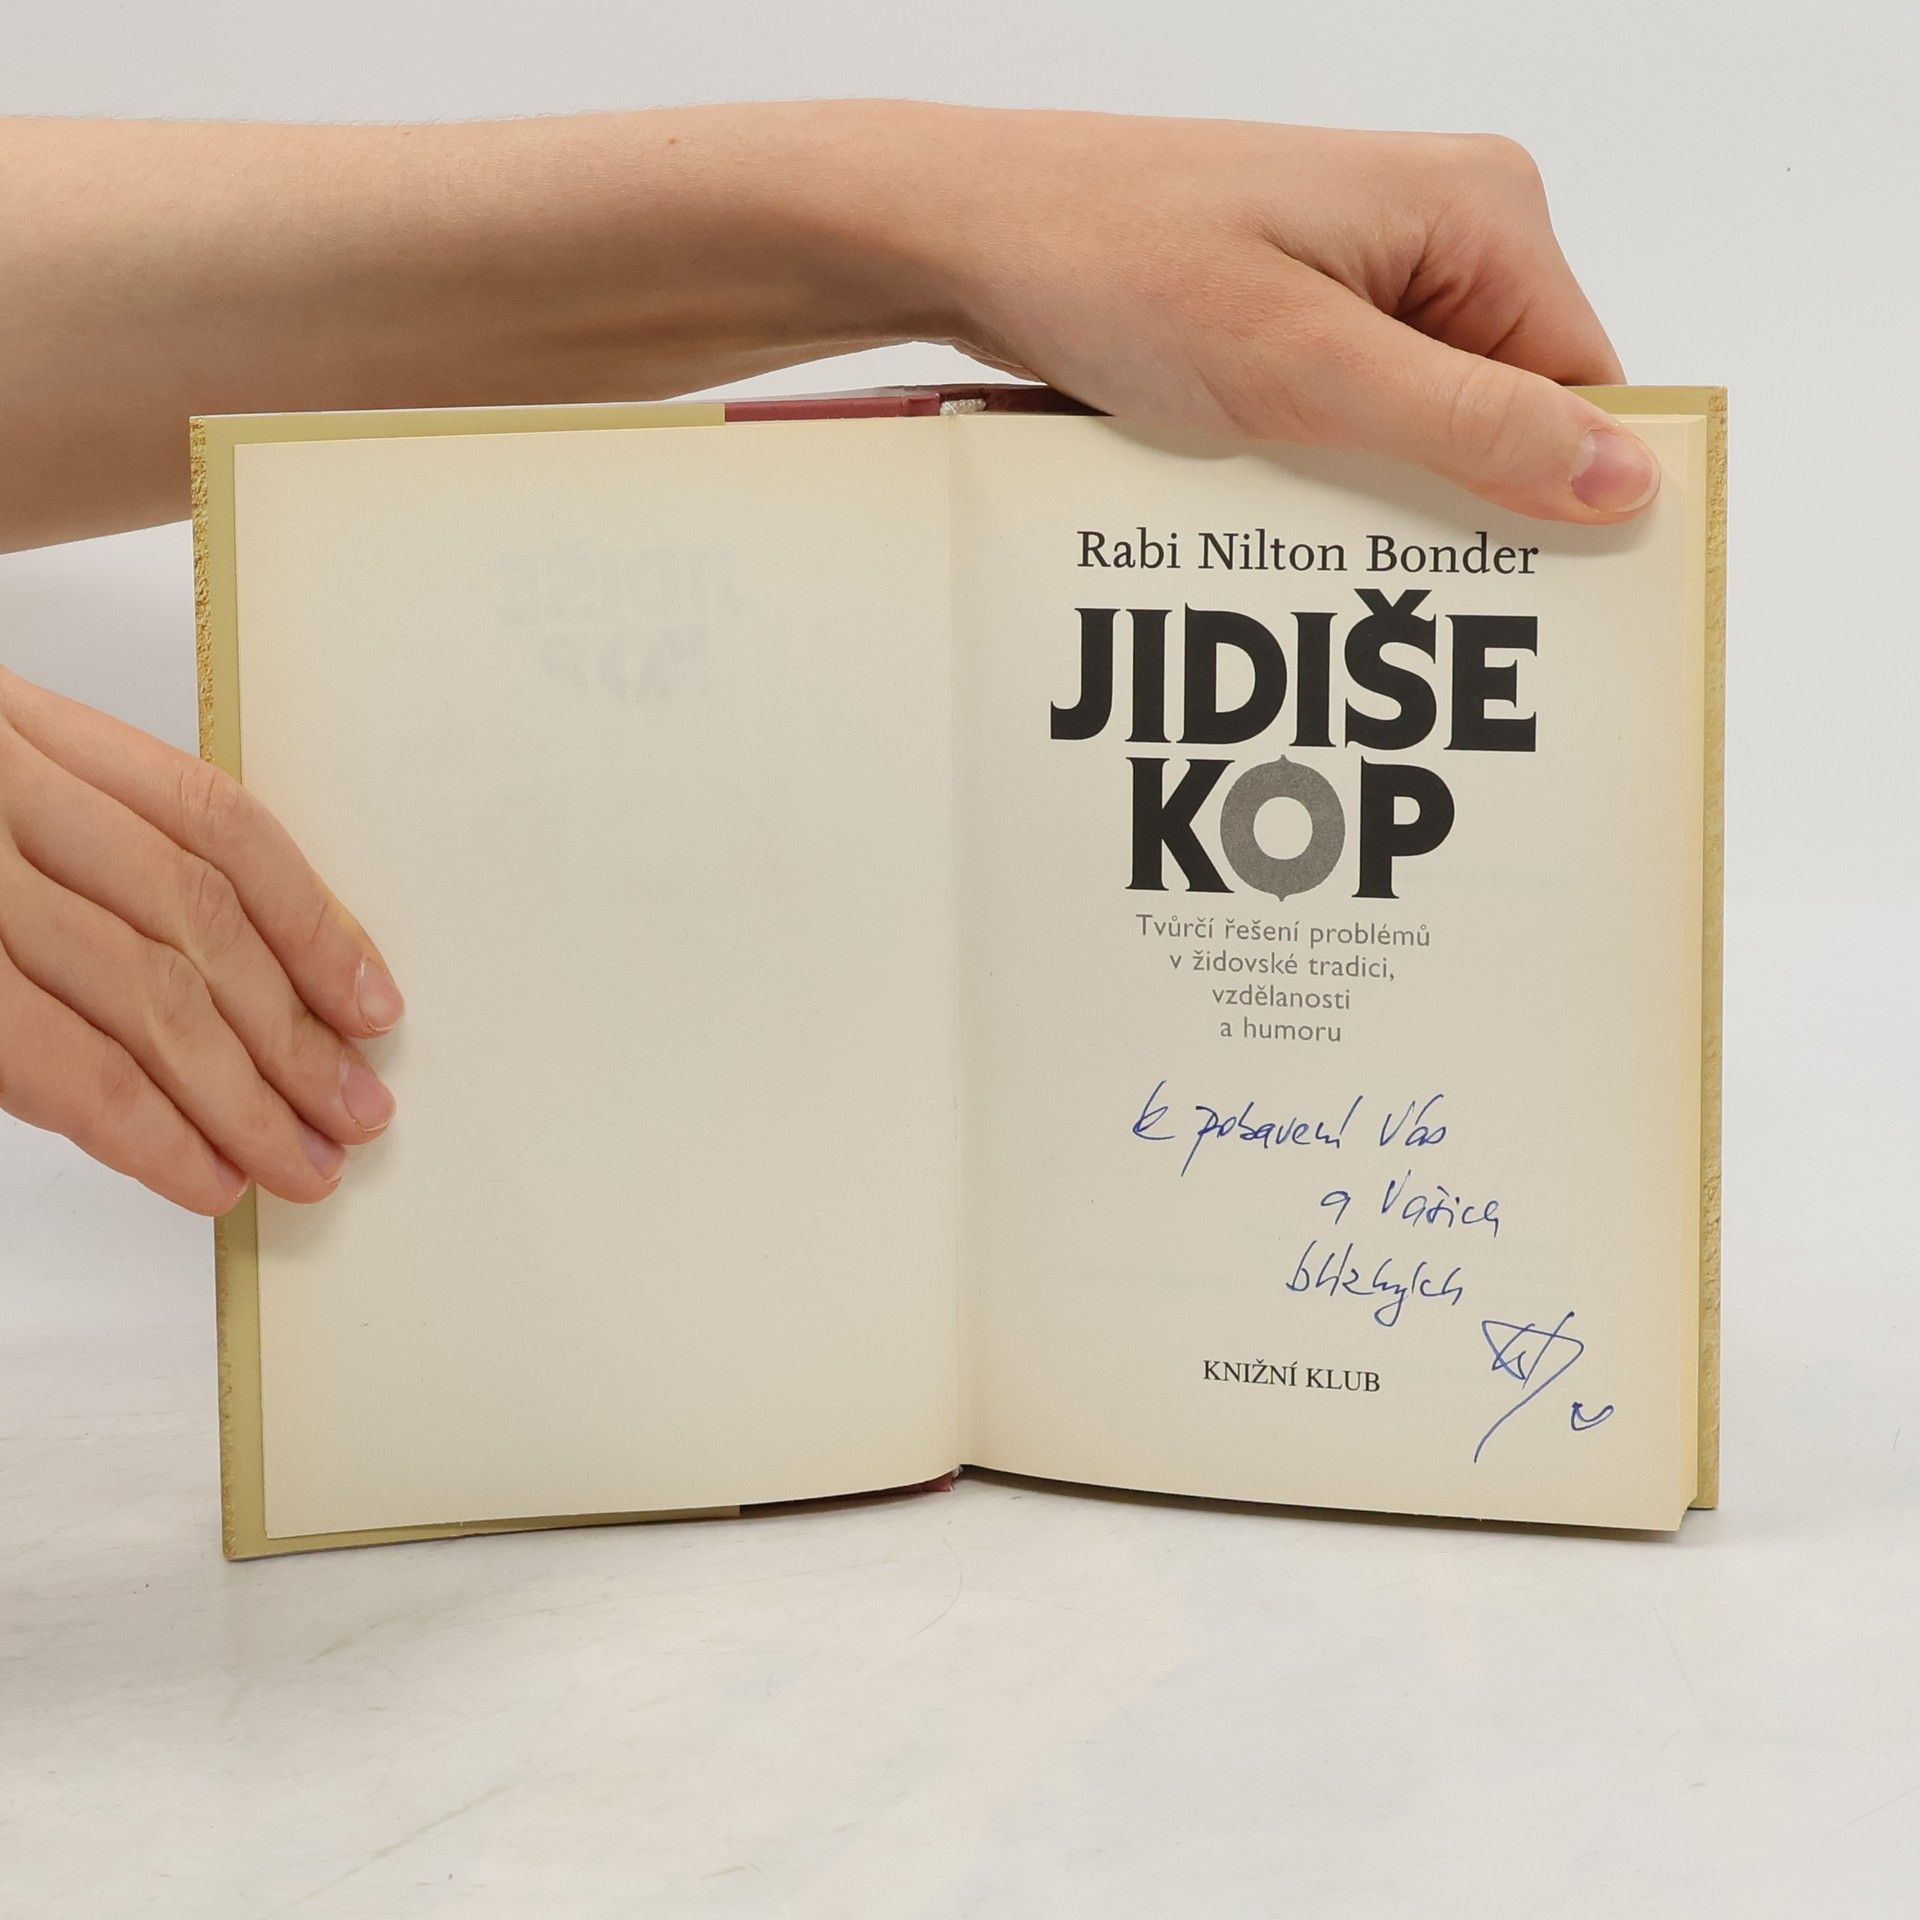 Rabi Nilton Bonder
JIDIŠE
KOP
Tvůrčí řešení problémů
v židovské tradici,
vzdělanosti
a humoru
k pobavení Vás
a Vašich
blízkých
KNIŽNÍ KLUB